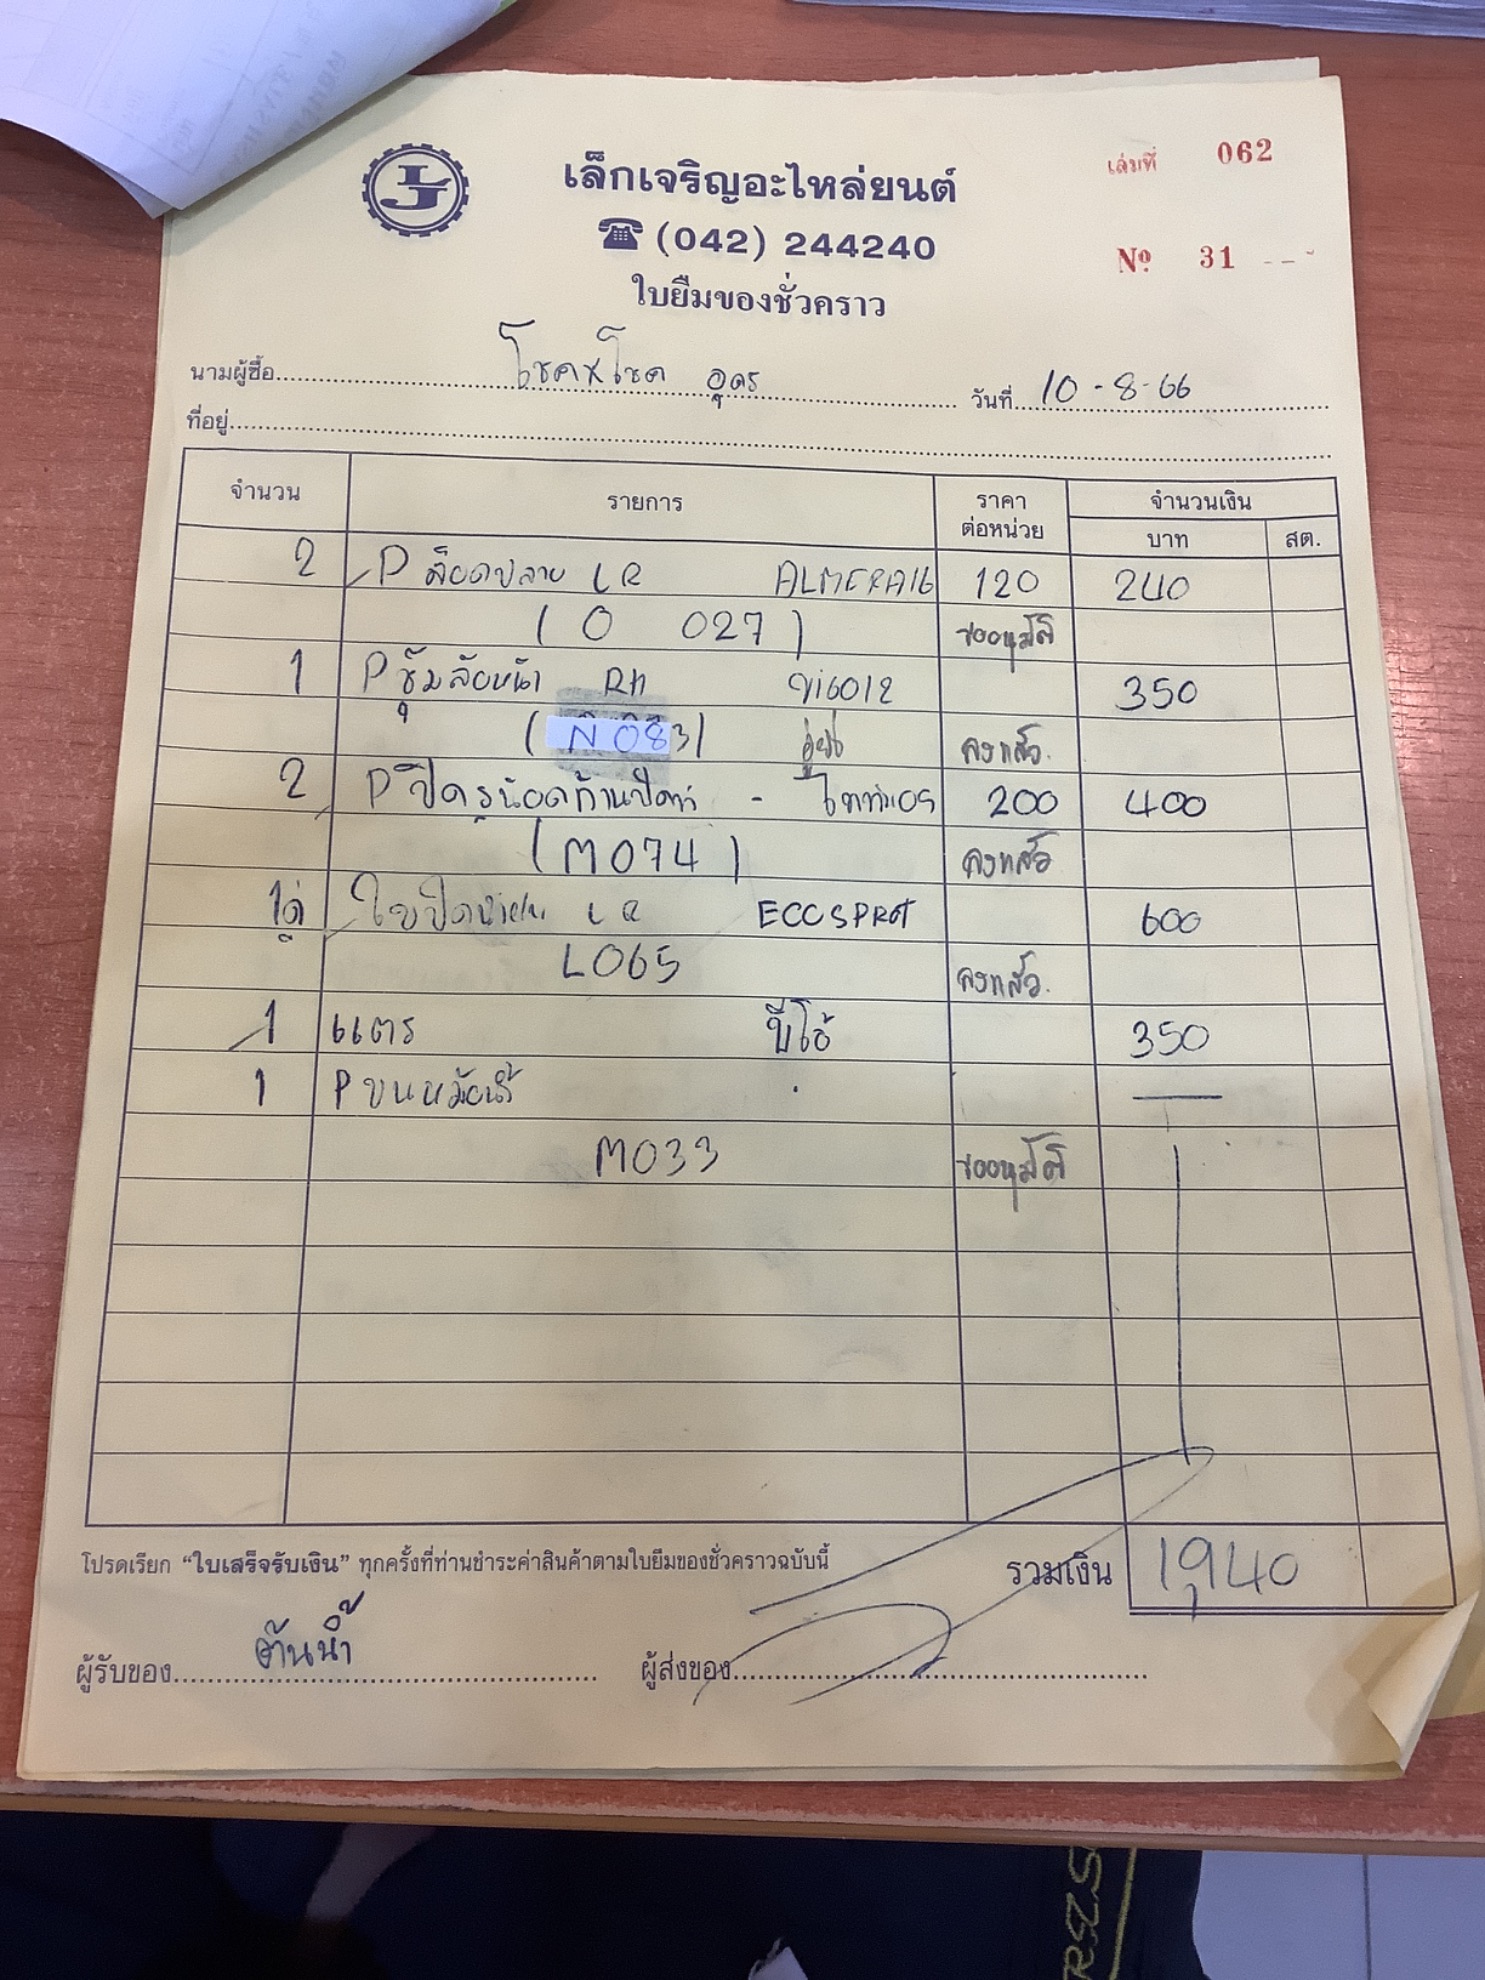 เล็กเจริญอะไหล่ยนต์
เล่มที่ 062
(042) 244240
Nº 31
ใบยืมของชั่วคราว
นามผู้ซื้อ โชค X โชค อุดร วันที่ 10-8-66
ที่อยู่
จำนวน รายการ ราคาต่อหน่วย จำนวนเงิน
บาท สต.
2 P ล็อคปลาย L R ALMERA16 120 240
(O 027) ขออนุมัติ
1 P ซุ้มล้อหน้า RH VIGO12 350
(N 083) ลงแล้ว.
2 P ปิดรูน็อตก้าน - 200 400
(M074) ลงแล้ว
1คู่ ใบปิด L R ECOSPROT 600
L065 ลงแล้ว.
1 แตร 350
1 P บนหม้อน้ำ
M033 ขออนุมัติ
โปรดเรียก “ใบเสร็จรับเงิน” ทุกครั้งที่ท่านชำระค่าสินค้าตามใบยืมของชั่วคราวฉบับนี้ รวมเงิน 1,940
ผู้รับของ ต้นน้ำ ผู้ส่งของ